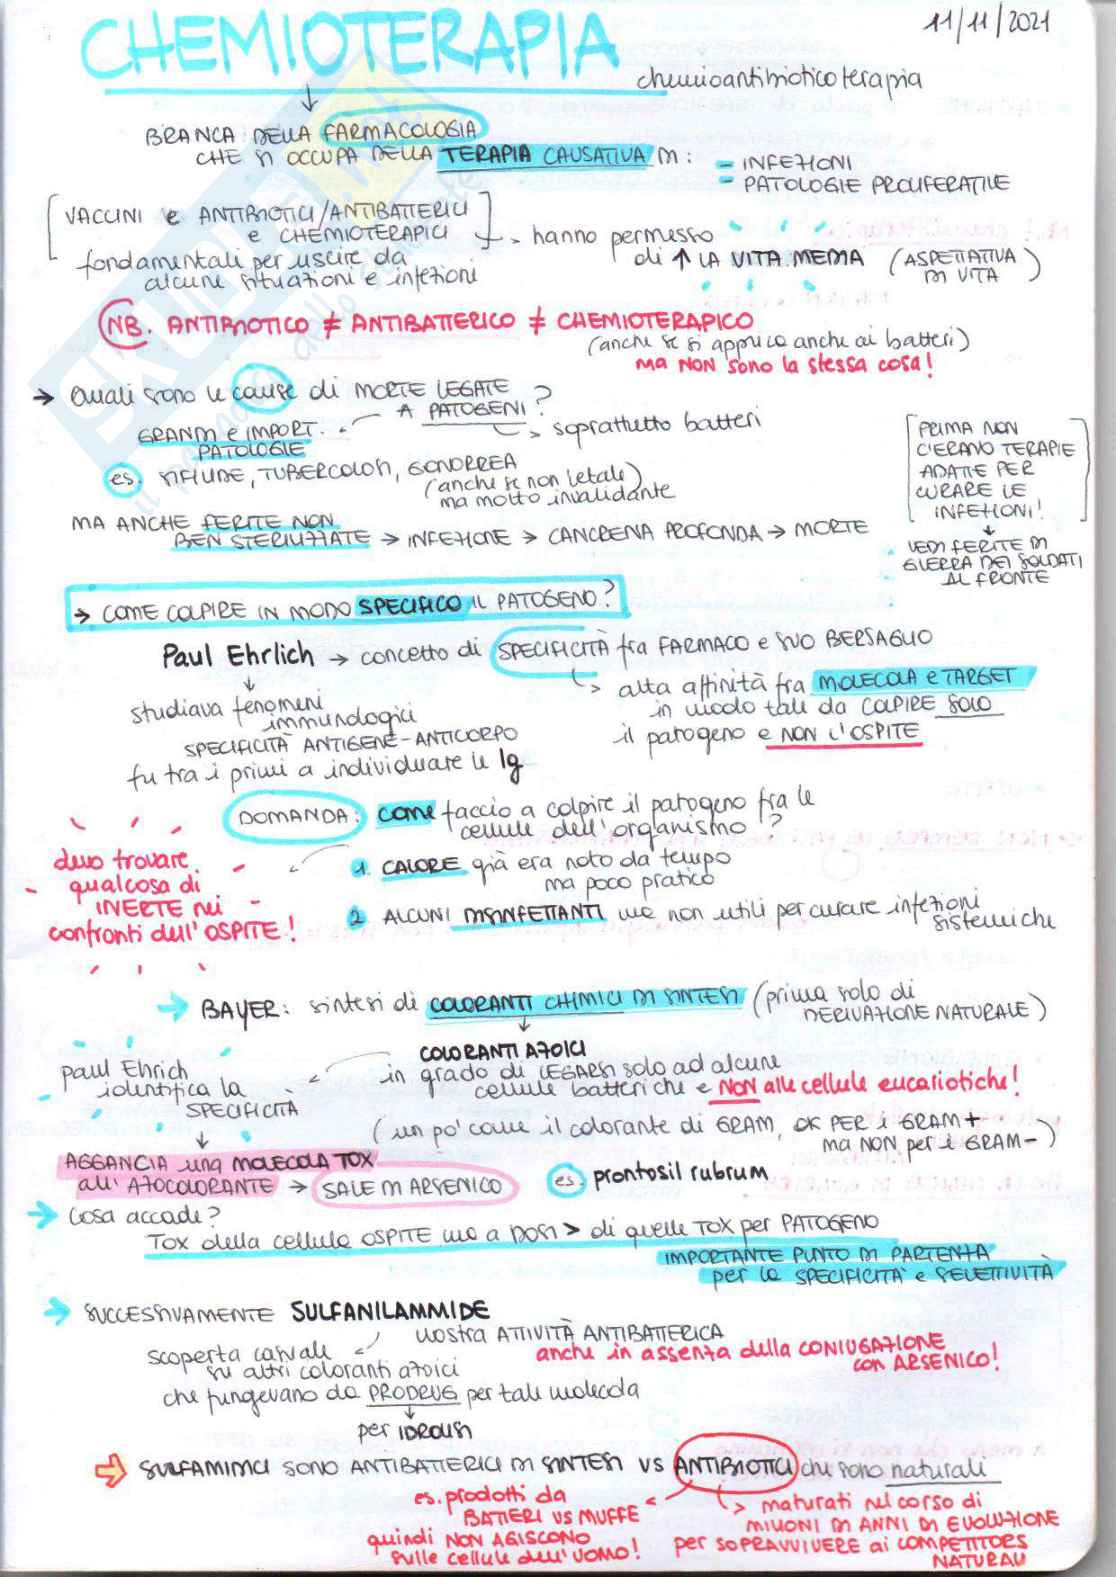 CHEMIOTERAPIA
11/11/2021
chemioantibioticoterapia
BRANCA DELLA FARMACOLOGIA
CHE SI OCCUPA DELLA TERAPIA CAUSATIVA DI:
- INFEZIONI
- PATOLOGIE PROLIFERATIVE
VACCINI e ANTIBIOTICI/ANTIBATTERICI
e CHEMIOTERAPICI
fondamentali per uscire da
alcune situazioni e infezioni
→ hanno permesso
di ↑ LA VITA MEDIA (ASPETTATIVA
DI VITA)
NB. ANTIBIOTICO ≠ ANTIBATTERICO ≠ CHEMIOTERAPICO
(anche se si applica anche ai batteri)
MA NON sono la stessa cosa!
→ Quali sono le cause di MORTE LEGATE
A PATOGENI?
GRANDI e IMPORT.
PATOLOGIE
→ soprattutto batteri
es. SIFILIDE, TUBERCOLOSI, GONORREA
(anche se non letale)
ma molto invalidante
PRIMA NON
C'ERANO TERAPIE
ADATTE PER
CURARE LE
INFEZIONI!
MA ANCHE FERITE NON
BEN STERILIZZATE → INFEZIONE → CANCRENA PROFONDA → MORTE
VEDI FERITE DI
GUERRA DEI SOLDATI
AL FRONTE
→ COME COLPIRE IN MODO SPECIFICO IL PATOGENO?
Paul Ehrlich → concetto di SPECIFICITÀ fra FARMACO e SUO BERSAGLIO
→ alta affinità fra MOLECOLA e TARGET
in modo tale da COLPIRE SOLO
il patogeno e NON L'OSPITE
studiava fenomeni
immunologici
SPECIFICITÀ ANTIGENE-ANTICORPO
fu tra i primi a individuare le Ig
DOMANDA: COME faccio a colpire il patogeno fra le
cellule dell'organismo?
1. CALORE già era noto da tempo
ma poco pratico
2 ALCUNI DISINFETTANTI ma non utili per curare infezioni
sistemiche
devo trovare
qualcosa di
INERTE nei
confronti dell'OSPITE!
→ BAYER: sintesi di COLORANTI CHIMICI DI SINTESI (prima solo di
DERIVAZIONE NATURALE)
COLORANTI AZOICI
in grado di LEGARSI solo ad alcune
cellule batteriche e NON alle cellule eucariotiche!
Paul Ehrich
identifica la
SPECIFICITÀ
(un po' come il colorante di GRAM, OK PER i GRAM+
ma NON per i GRAM-)
AGGANCIA una MOLECOLA TOX
all'AZOCOLORANTE → SALE DI ARSENICO
es. prontosil rubrum
→ Cosa accade?
TOX della cellula OSPITE ma a DOSI > di quelle TOX per PATOGENO
IMPORTANTE PUNTO DI PARTENZA
per la SPECIFICITÀ e SELETTIVITÀ
→ SUCCESSIVAMENTE SULFANILAMMIDE
mostra ATTIVITÀ ANTIBATTERICA
anche in assenza della CONIUGAZIONE
con ARSENICO!
scoperta casuale
su altri coloranti azoici
che fungevano da PRODRUG per tale molecola
per IDROLISI
⇒ SULFAMIDICI SONO ANTIBATTERICI DI SINTESI VS ANTIBIOTICI che sono naturali
es. prodotti da
BATTERI VS MUFFE
quindi NON AGISCONO
sulle cellule dell'UOMO!
→ maturati nel corso di
MILIONI DI ANNI DI EVOLUZIONE
per SOPRAVVIVERE ai COMPETITORS
NATURALI